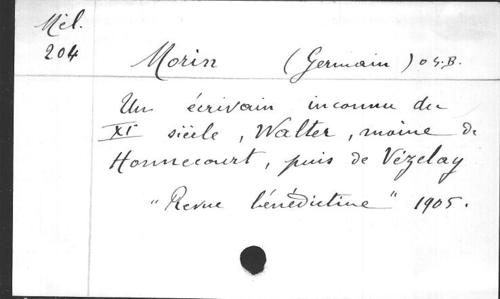 Mél.
204
Morin (Germain) O.S.B.
Un écrivain inconnu du
XIe siècle, Walter, moine de
Honnecourt, puis de Vézelay
"Revue bénédictine" 1905.